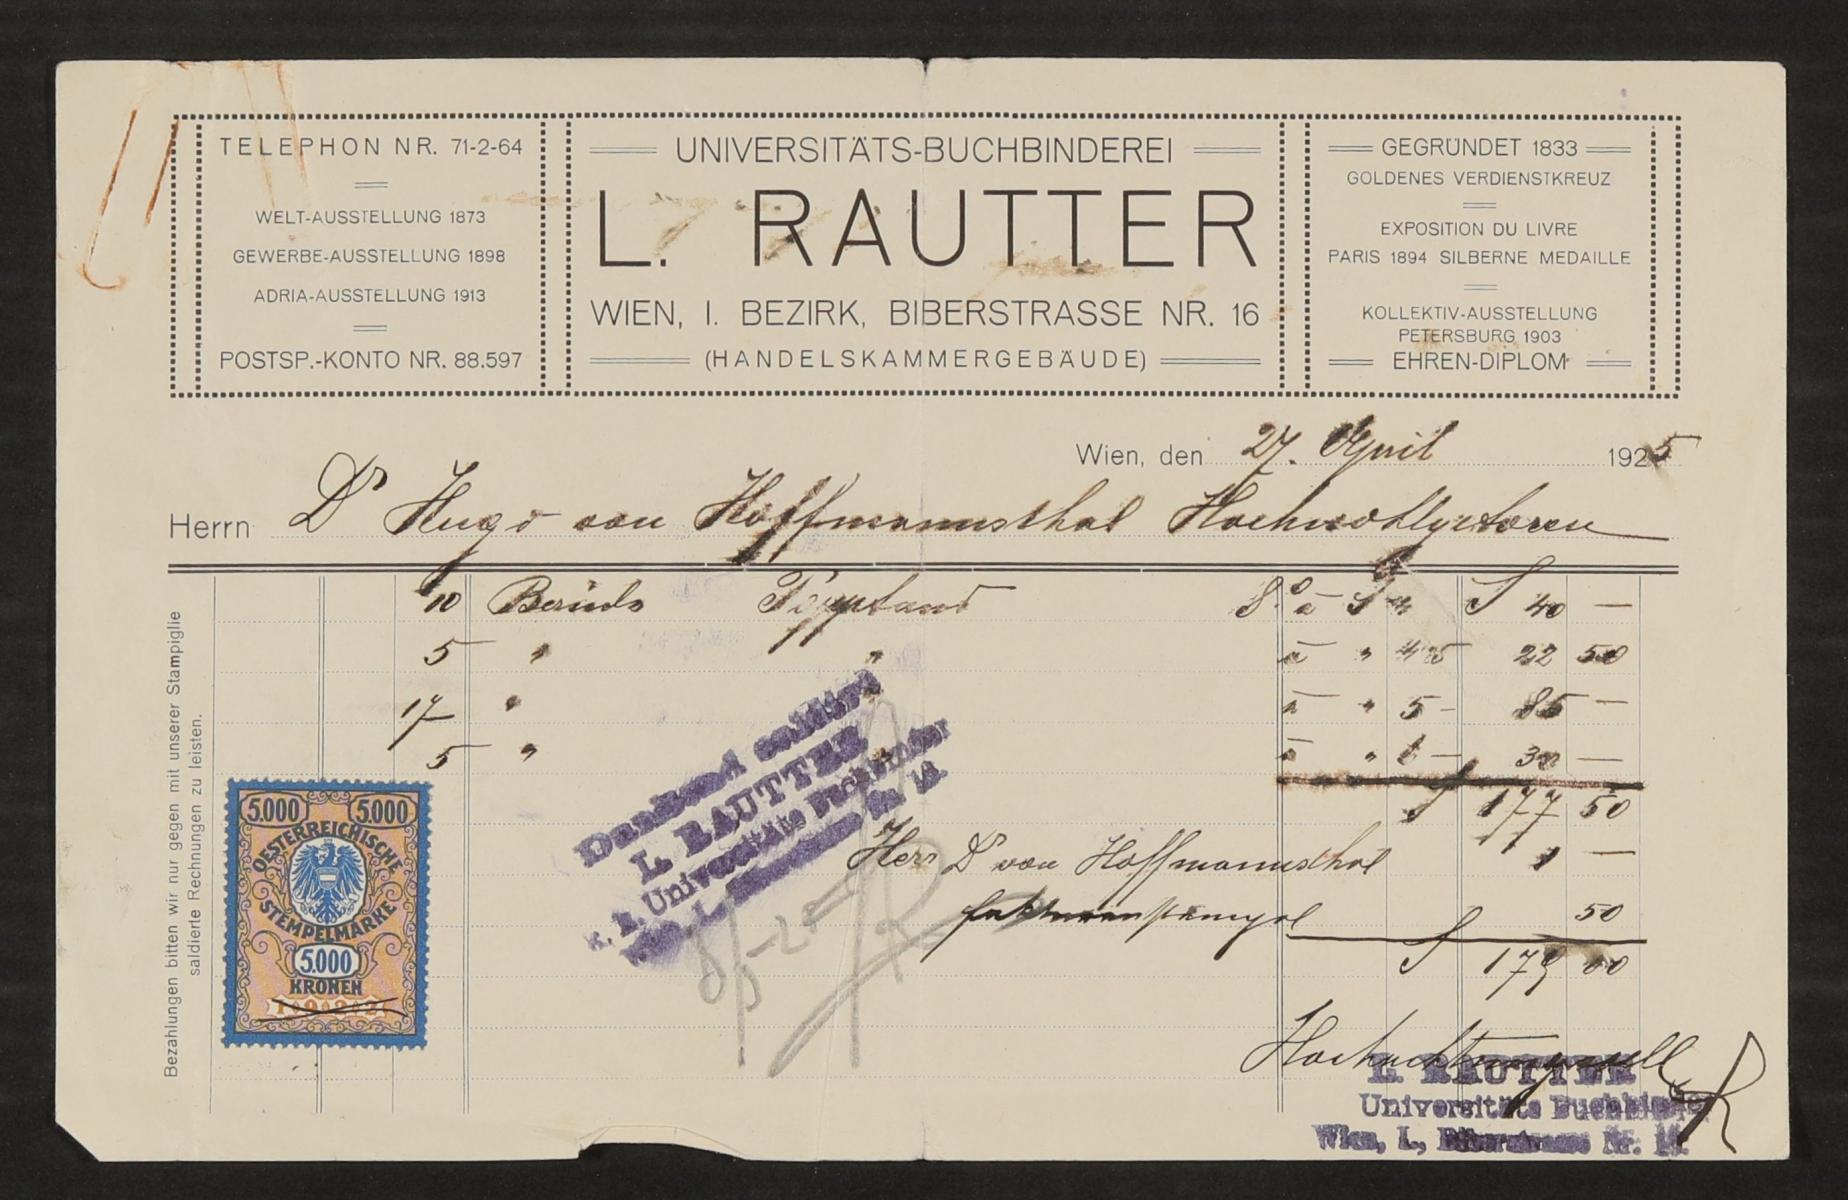 TELEPHON NR. 71-2-64
WELT-AUSSTELLUNG 1873
GEWERBE-AUSSTELLUNG 1898
ADRIA-AUSSTELLUNG 1913
POSTSP.-KONTO NR. 88.597
UNIVERSITÄTS-BUCHBINDEREI
L. RAUTTER
WIEN, I. BEZIRK, BIBERSTRASSE NR. 16
(HANDELSKAMMERGEBÄUDE)
GEGRÜNDET 1833
GOLDENES VERDIENSTKREUZ
EXPOSITION DU LIVRE
PARIS 1894 SILBERNE MEDAILLE
KOLLEKTIV-AUSSTELLUNG
PETERSBURG 1903
EHREN-DIPLOM
Wien, den 27. April 1925
Herrn Dr Hugo von Hoffmannsthal Hochwohlgeboren
10 Bände Pappband 8° à S 4 S 40 —
5 " " à " 4 50 22 50
17 " à " 5 - 85 —
5 " à " 6 — 30 —
S 177 50
Herr Dr von Hoffmannsthal 1 —
Fakturenstempel 50
S 179 00
Hochachtungsvoll
Dankend saldiert
L. RAUTTER
Universitäts Buchbinder
L. RAUTTER
Universitäts Buchbinder
Wien, I., Biberstrasse Nr. 16.
Bezahlungen bitten wir nur gegen mit unserer Stampiglie
saldierte Rechnungen zu leisten.
5.000 5.000
OESTERREICHISCHE
STEMPELMARKE
5.000
KRONEN